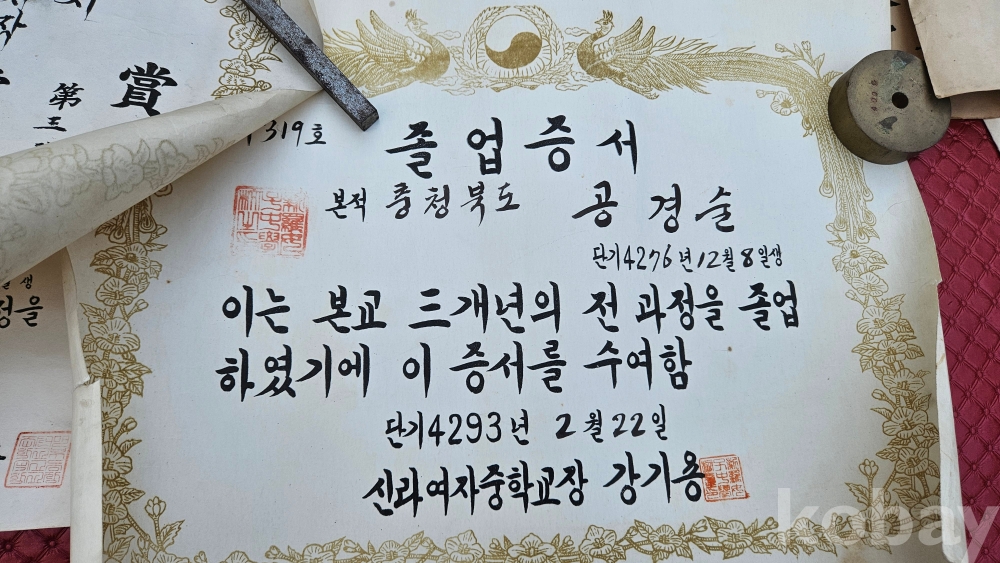 賞
第
三
319호
졸업증서
본적 충청북도 공경순
단기4276년12월8일생
이는 본교 三개년의 전 과정을 졸업
하였기에 이 증서를 수여함
단기4293년 2월22일
신라여자중학교장 강기용
정을
kobay